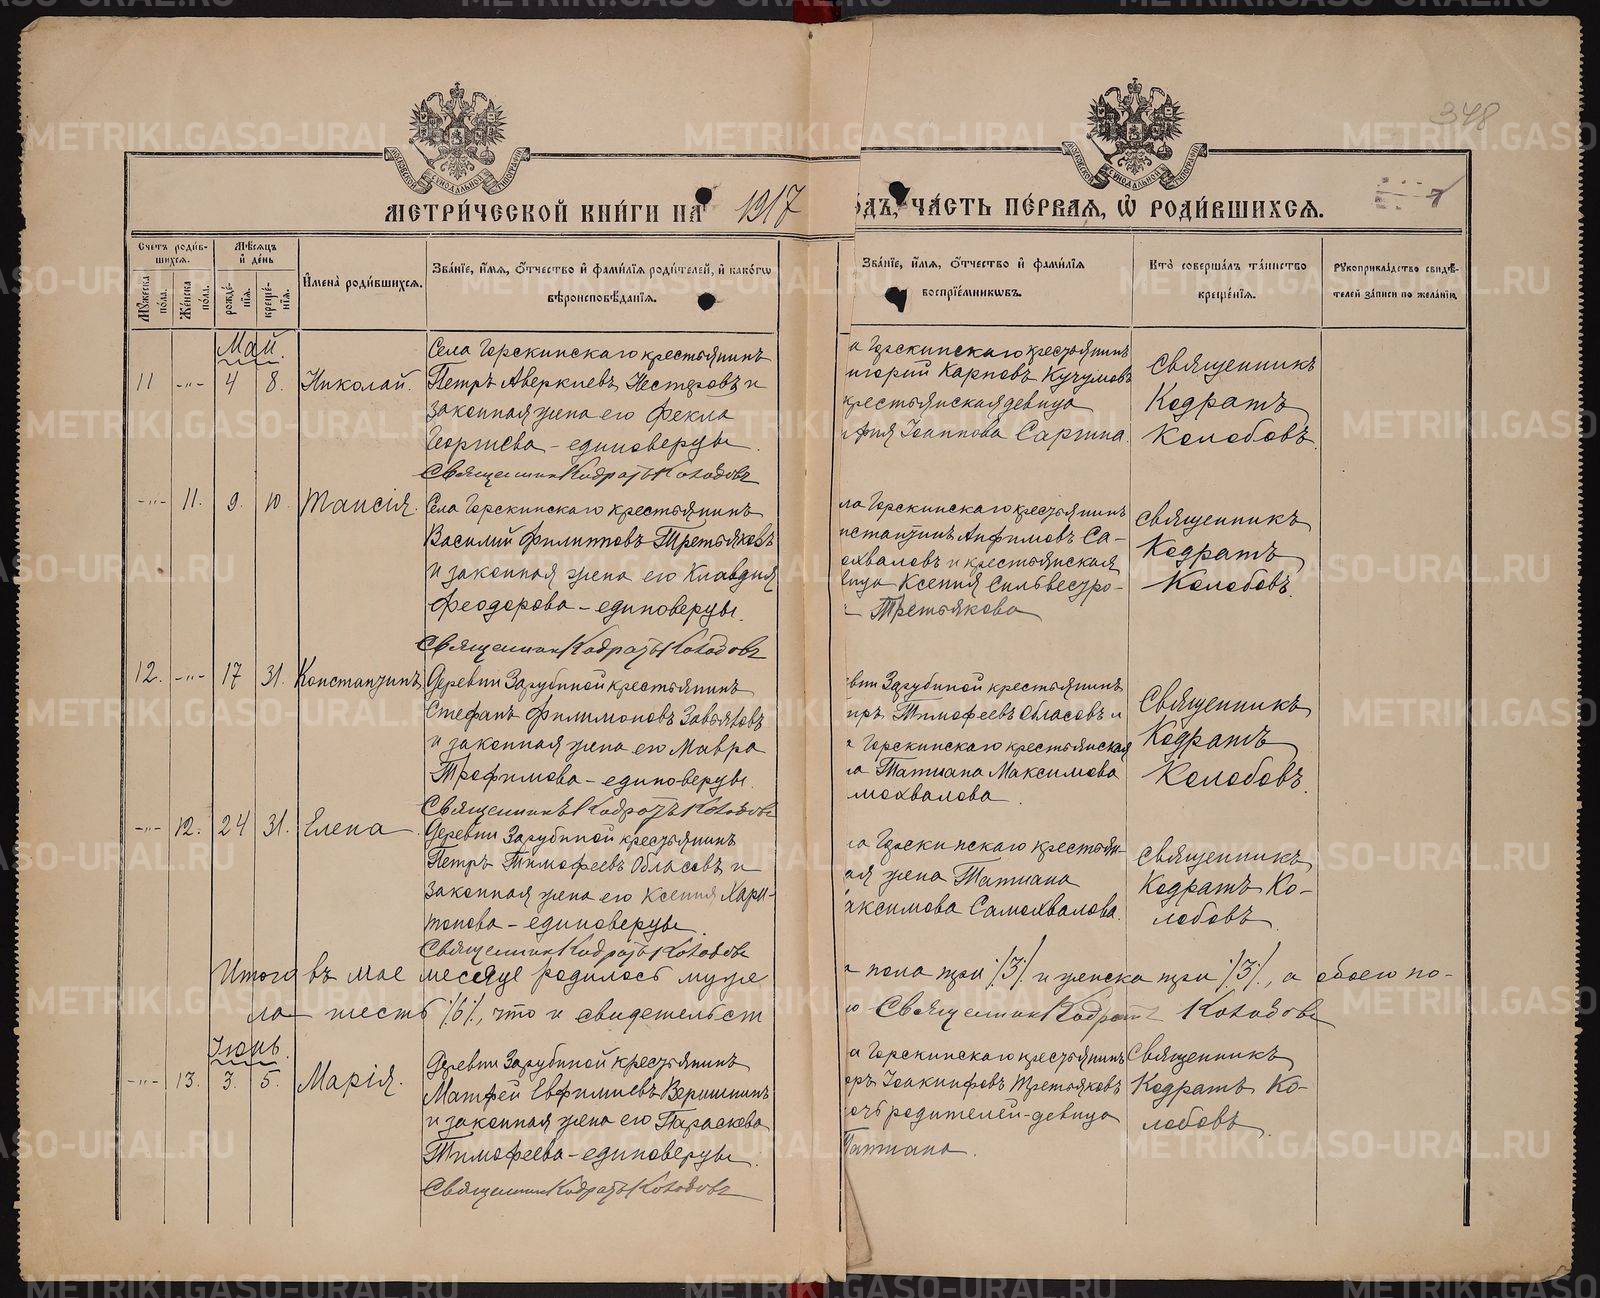 348
МЕТРИЧЕСКОЙ КНИГИ НА 1917 ГОДЪ, ЧАСТЬ ПЕРВАЯ, Ѡ РОДИВШИХСЯ.
Счетъ родив-
шихся.
Мужеска пола.
Женска пола.
Мѣсяцъ и день
рождения.
крещения.
Имена родившихся.
Званіе, имя, отчество и фамилія родителей, и какогѡ
вѣроисповѣданія.
Званіе, имя, отчество и фамилія
воспріемникѡвъ.
Кто совершалъ таинство
крещенія.
Рукоприкладство свидѣ-
телей записи по желанію.
Май.
11 -"- 4 8. Николай.
Села Горскинскаго крестьянинъ
Петръ Аверкиевъ Нестеровъ и
законная жена его Фекла
Георгиева - единоверцы.
Священник Кодратъ Колобовъ
а Горскинскаго крестьянинъ
игорий Карповъ Кучумовъ
крестьянская девица
Иоаннова Саргина.
Священникъ
Кодратъ
Колобовъ.
-"- 11. 9. 10. Таисія.
Села Горскинскаго крестьянинъ
Василий Филипповъ Третьяковъ
и законная жена его Клавдия
Феодорова - единоверцы.
Священник Кодратъ Колобовъ
ла Горскинскаго крестьянинъ
нстантинъ Анфимовъ Са-
охваловъ и крестьянская
вица Ксения Сильвестро-
Третьякова
Священникъ
Кодратъ
Колобовъ.
12. -"- 17 31. Константинъ
Деревни Зарубиной крестьянинъ
Стефанъ Филимоновъ Завьяловъ
и законная жена его Мавра
Трофимова - единоверцы.
Священникъ Кодратъ Колобовъ
вни Зарубиной крестьянинъ
тръ Тимофеевъ Обласовъ и
а Горскинскаго крестьянская
а Татиана Максимова
мохвалова.
Священникъ
Кодратъ
Колобовъ.
-"- 12. 24 31. Елена
Деревни Зарубиной крестьянинъ
Петръ Тимофеевъ Обласовъ и
законная жена его Ксения Хари-
тонова - единоверцы.
Священник Кодратъ Колобовъ
ла Горскинскаго крестьян-
ая жена Татиана
аксимова Самохвалова.
Священникъ
Кодратъ Ко-
лобовъ
Итого въ мае месяце родилось муже
а пола три /3/ и женска три /3/, а обоего по-
ла - шесть /6/, что и свидетельст
ю Священник Кодратъ Колобовъ
Июнь.
-"- 13. 3. 5. Марія.
Деревни Зарубиной крестьянинъ
Матфей Евфимиевъ Вершининъ
и законная жена его Параскева
Тимофеева - единоверцы.
Священник Кодратъ Колобовъ
а Горскинскаго крестьянинъ
оръ Иоакинфовъ Третьяковъ
очь родителей - девица
Татиана.
Священникъ
Кодратъ Ко-
лобовъ.
METRIKI.GASO-URAL.RU